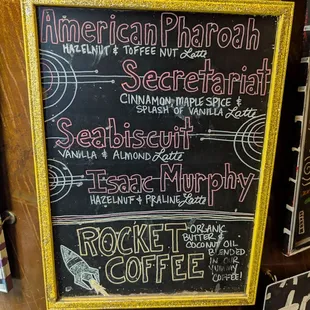 American Pharoah
HAZELNUT & TOFFEE NUT Latte
Secretariat
CINNAMON, MAPLE SPICE &
SPLASH OF VANILLA Latte
Seabiscuit
VANILLA & ALMOND Latte
Isaac Murphy
HAZELNUT & PRALINE Latte
ROCKET
COFFEE
ORGANIC
BUTTER &
COCONUT OIL
BLENDED
IN OUR
YUMMY
COFFEE!